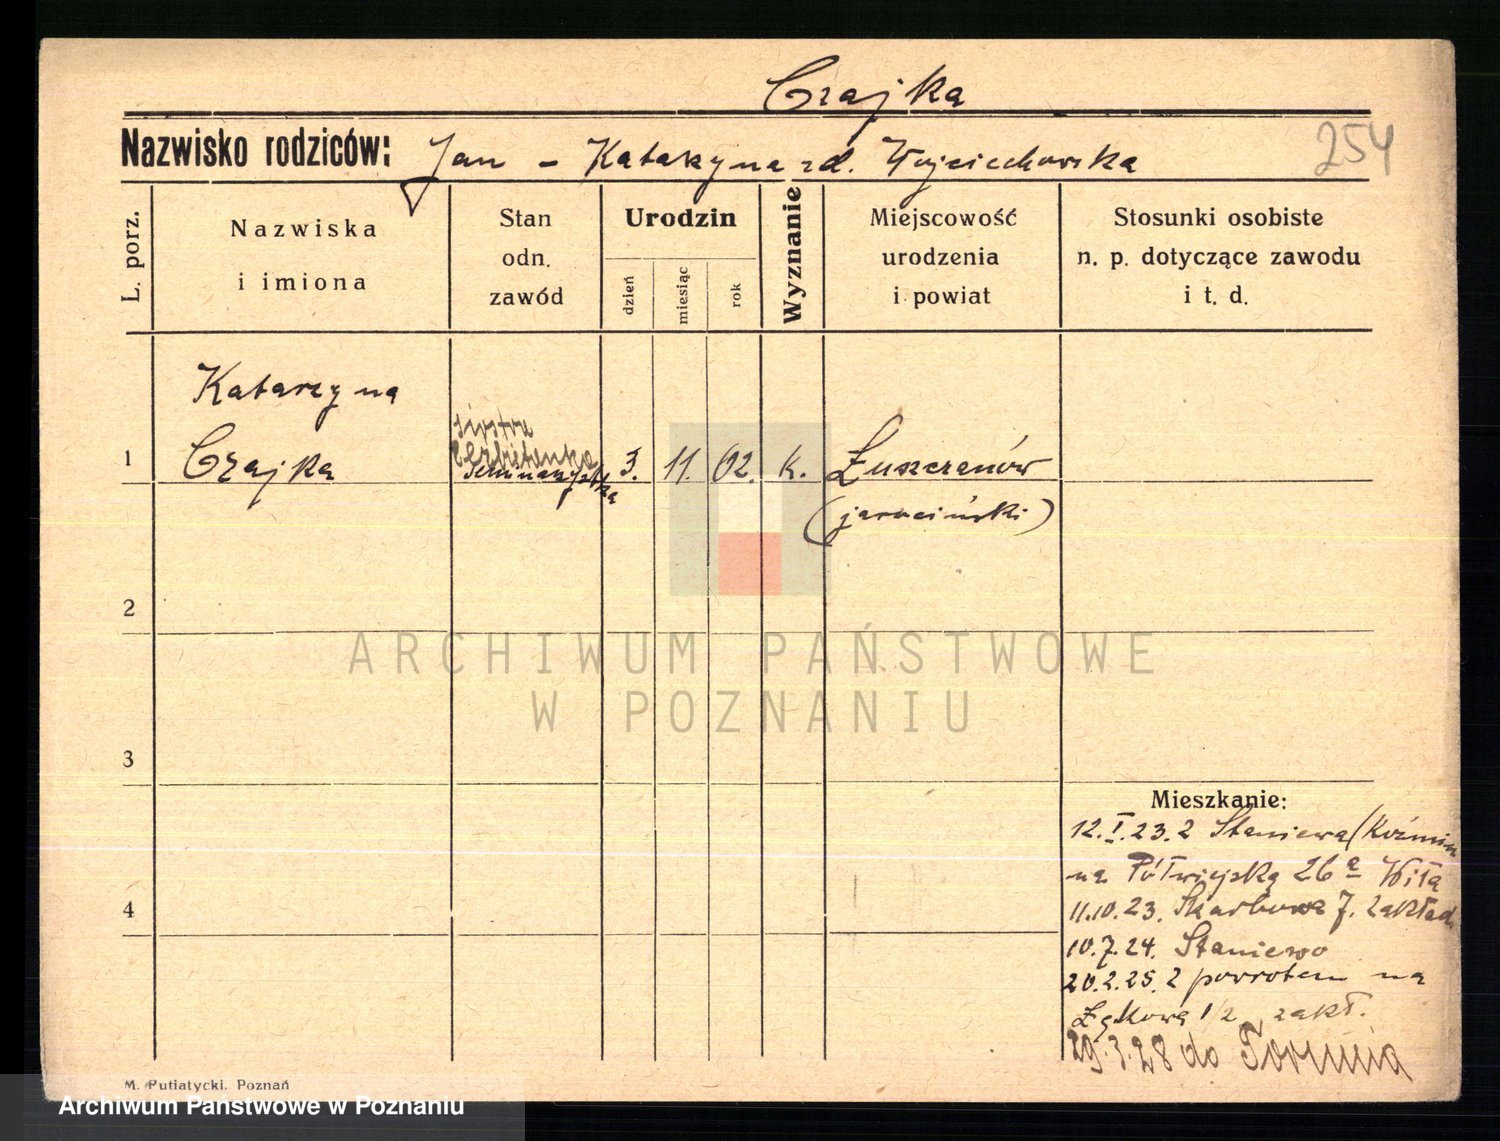 Czajka
Nazwisko rodziców: Jan - Katarzyna zd. Wojciechowska
254
L. porz.
Nazwiska
i imiona
Stan
odn.
zawód
Urodzin
dzień
miesiąc
rok
Wyznanie
Miejscowość
urodzenia
i powiat
Stosunki osobiste
n. p. dotyczące zawodu
i t. d.
1
Katarzyna
Czajka
siostra
Elżbietanka
Seminarzystka
3. 11. 02. k.
Łuszczanów
(jarociński)
2
3
4
ARCHIWUM PAŃSTWOWE
W POZNANIU
Mieszkanie:
12.I.23. z Staniewa (Koźmin
na Półwiejską 26a
11.10.23. Skarbowa 7. zakład
10.7.24. Staniewo
20.2.25. z powrotem na
Łąkową 1/2 zakł.
29.3.28 do Torunia
M. Putiatycki. Poznań
Archiwum Państwowe w Poznaniu